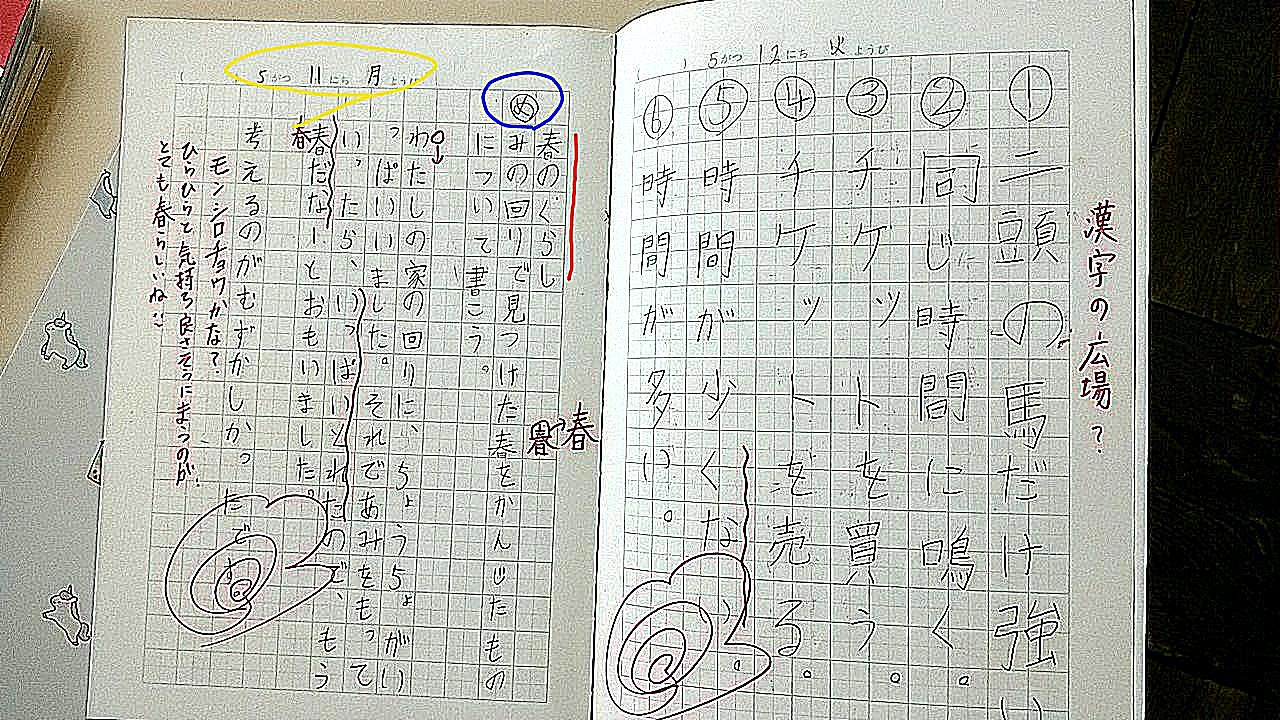 5がつ 12にち 火ようび
漢字の広場?
①二頭の馬だけ強い
②同じ時間に鳴く。
③チケットを買う。
④チケットを売る。
⑤時間が少くない。
⑥時間が多い。
5がつ 11にち 月ようび
め
春のくらし
みの回りで見つけた春をかんじたもの
春
について書こう。
わたしの家の回りに、ちょうちょがい
っぱいいました。それであみをもって
いったら、いっぱいとれたので、もう
春だなーとおもいました。
春
考えるのがむずかしかったです。
モンシロチョウかな?
ひらひらと気持ち良さそうにまうのが、
とても春らしいね